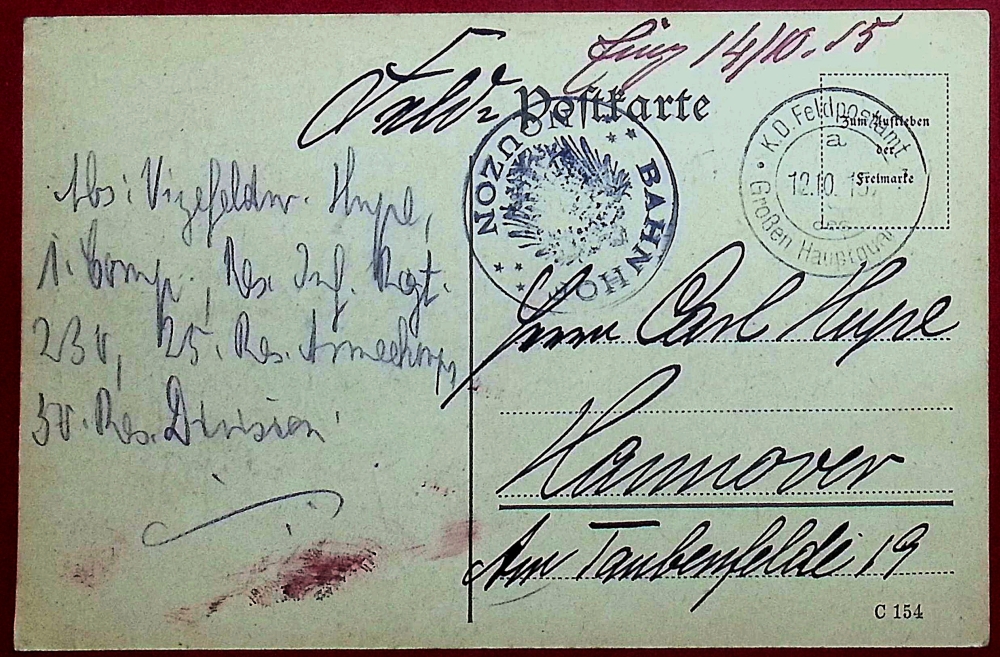 Eing 14/10. 15
Feld=
Postkarte
BAHNHOF NOUZON
K.D. Feldpostamt
a
12.10. 15
des
Großen Hauptquar
Zum Aufkleben
der
Freimarke
Abs: Vizefeldw. Hupe,
1. Comp., Res. Inf. Regt.
230, 25. Res. Armeekorps,
50. Res. Division.
Herrn Carl Hupe
Hannover
Am Taubenfelde 19
C 154